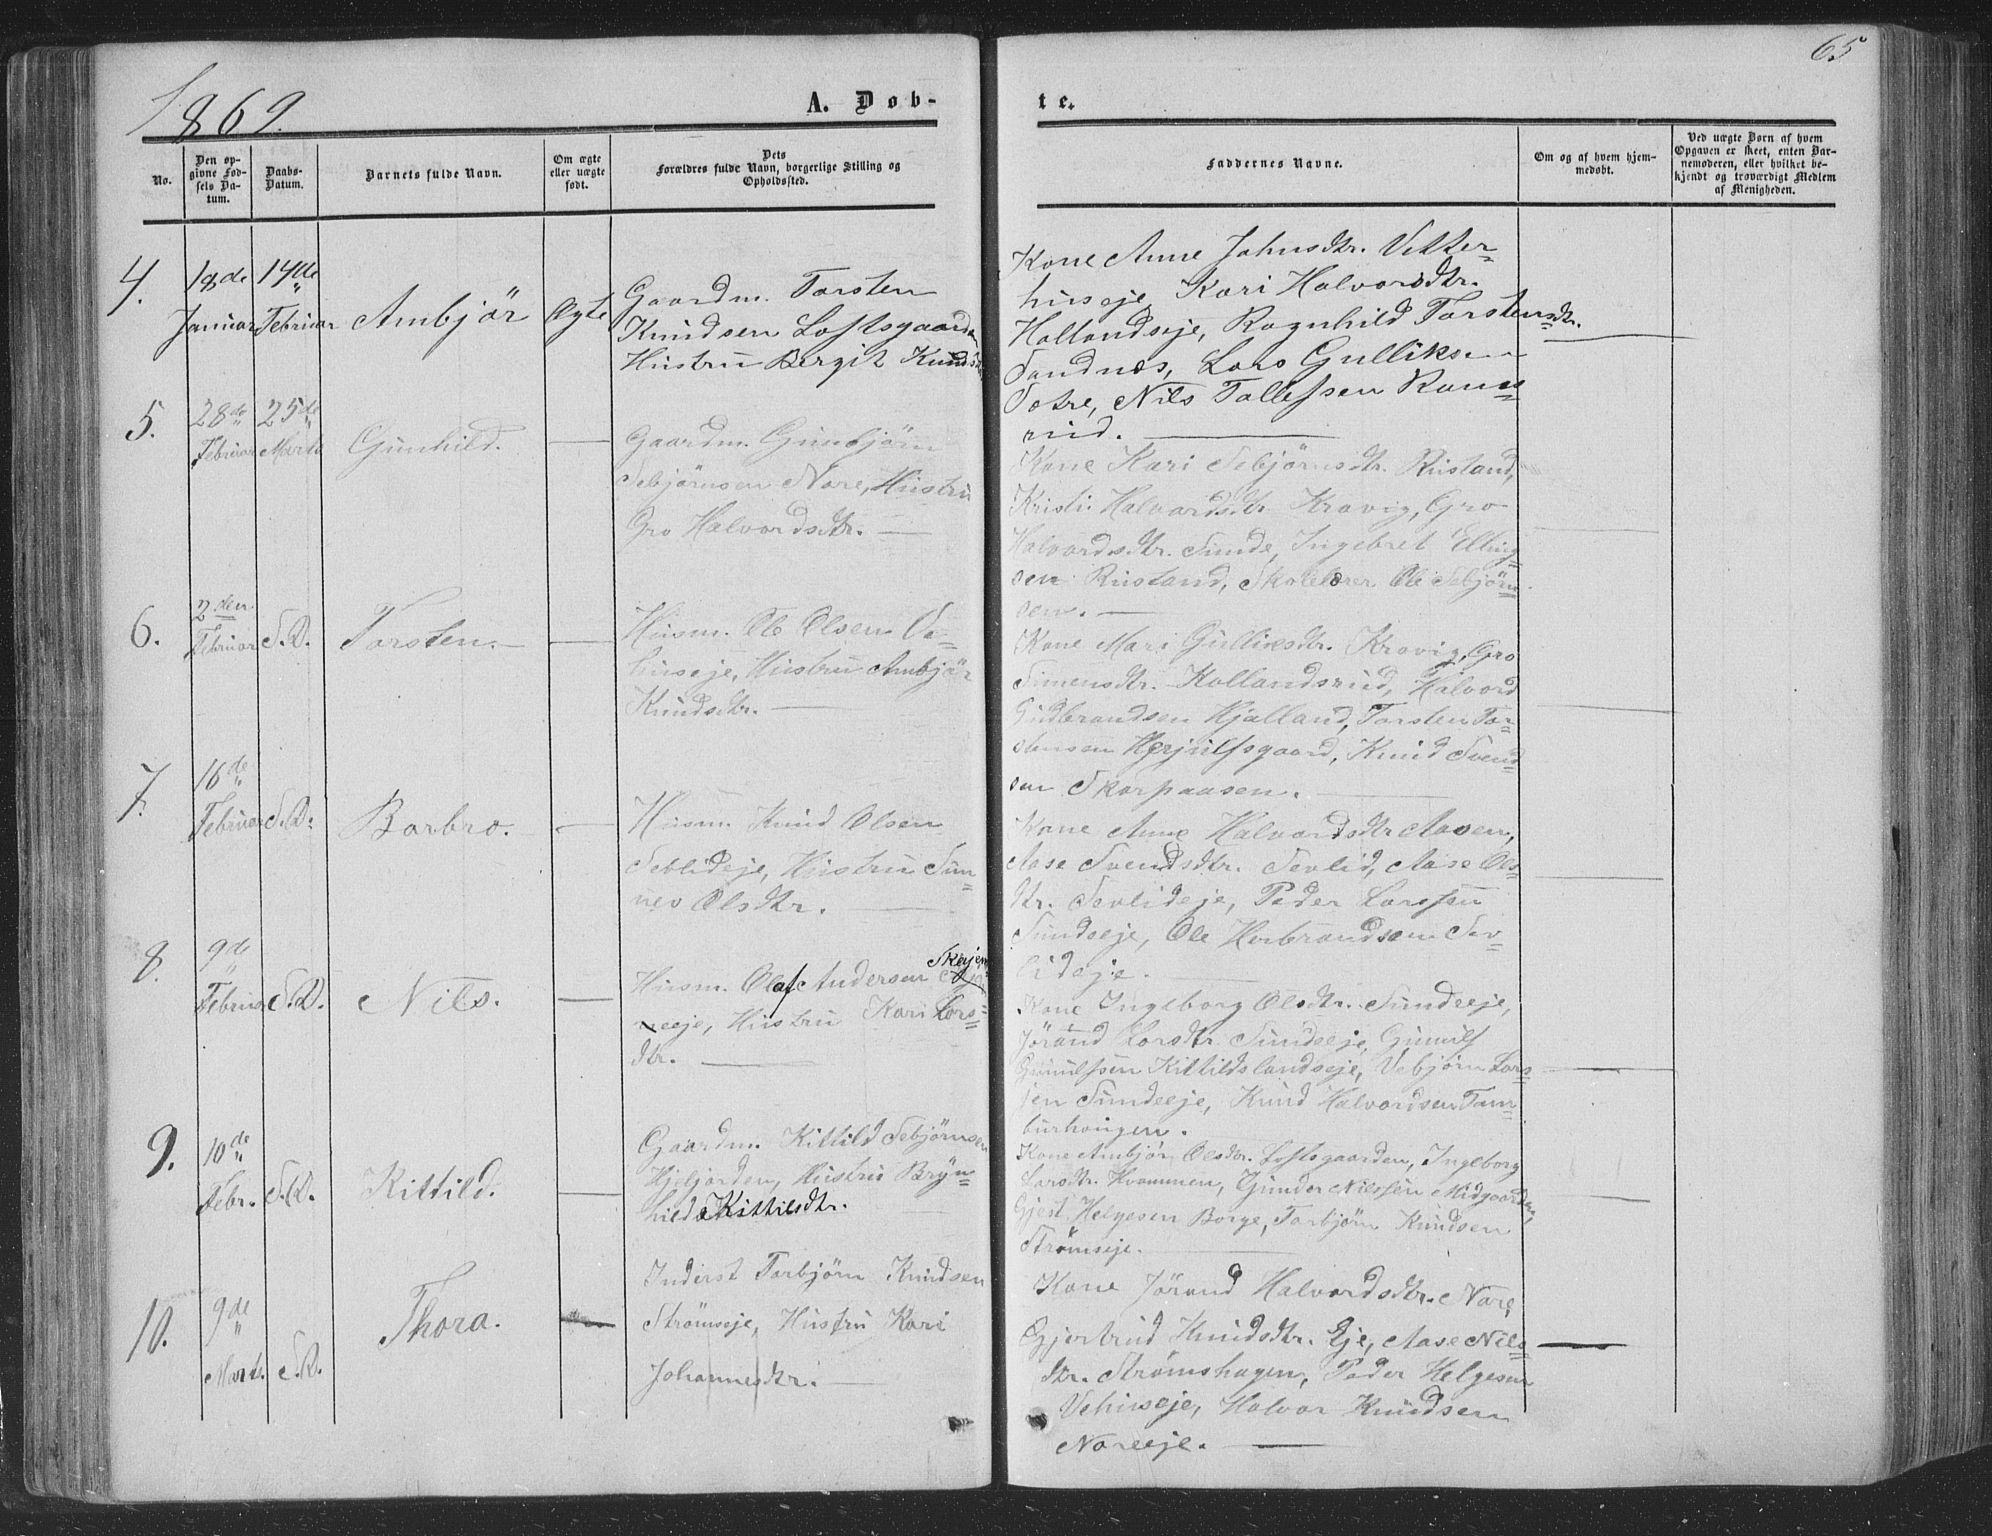 65
1869.
A. Døb-
te.
No.
Den op-
givne Fød-
sels Da-
tum.
Daabs-
Datum.
Barnets fulde Navn.
Om ægte
eller uægte
født.
Dets
Forældres fulde Navn, borgerlige Stilling og
Opholdssted.
Faddernes Navne.
Om og af hvem hjem-
medøbt.
Ved uægte Born af hvem
Opgaven er skeet, enten Bar-
nemoderen, eller hvilket be-
kjendt og troværdigt Medlem
af Menigheden.
4.
18de
Januar
14de
Februar
Ambjör
Ægte
Gaardm. Torsten
Knudsen Loftsgaarden
Hustru Bergit Knudsdtr
Kone Anne Johnsdtr. Vetter-
huseje, Kari Halvorsdtr.
Hallandseje, Ragnhild Torstensdtr.
Sandnæs, Lars Gulliksen
Sotre, Nils Tollefssen Raun-
rud.
5.
28de
Februar
25de
Marts
Gunhild.
Gaardm. Gunbjörn
Sebjörnsen Nore, Hustru
Gro Halvordsdtr.
Kone Kari Sebjörnsdtr. Rustand,
Kristi Halvardsdtr Kravig, Gro
Halvordsdtr. Sunde, Ingebret Elling-
sen Rustand, Skolelærer Ole Sebjörn-
sen.
6.
2den
Februar
S.D.
Torsten.
Husm. Ole Olsen Ve-
huseje, Hustru Ambjör
Knudsdtr.
Kone Mari Gulliksdtr. Kravig, Gro
Simensdtr. Hollandsrud, Halvord
Gudbrandsen Hjalland, Torsten Tor-
stensen Herjulfsgaard, Knud Svend-
sen Skarpaasen.
7.
16de
Februar
S.D.
Barbro.
Husm. Knud Olsen
Sevlideje, Hustru Sun-
nev Olsdtr.
Kone Anne Halvordsdtr Aasen,
Aase Svendsdtr. Sevlid, Aase Ols-
dtr. Sevlideje, Peder Larssen
Sundeeje, Ole Herbrandsen Sev-
lideje.
8.
9de
Februar
S.D.
Nils.
Husm. Olaf Andersen Skjön-
neeje, Hustru Kari Lars-
dtr.
Kone Ingeborg Olsdtr. Sundeeje,
Jörand Larsdtr Sundeeje, Gunulf
Gunulfsen Kittildslandseje, Vebjörn Lars-
sen Sundeeje, Knud Halvordsen Tam-
burhougen.
9.
10de
Febr.
S.D.
Kittild.
Gaardm. Kittild Sebjörnsen
Hjebjorden, Hustru Bryn-
hild Kittilsdtr.
Kone Ambjör Olsdtr. Loftsgaarden, Ingeborg
Larsdtr. Kvammen, Gunder Nilssen Midgaarden,
Gjest Helgesen Borge, Torbjörn Knudsen
Strömseje.
10.
9de
Marts.
S.D.
Thora.
Inderst Torbjörn Knudsen
Strömseje, Hustru Kari
Johannesdtr.
Kone Jörand Halvordsdtr. Nore,
Gjertrud Knudsdtr. Eje, Aase Nils-
dtr. Strömshagen, Peder Helgesen
Vehuseje, Halvor Knudsen
Noreeje.